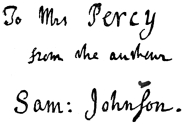 To Mrs Percy
from the authour
Sam: Johnson.